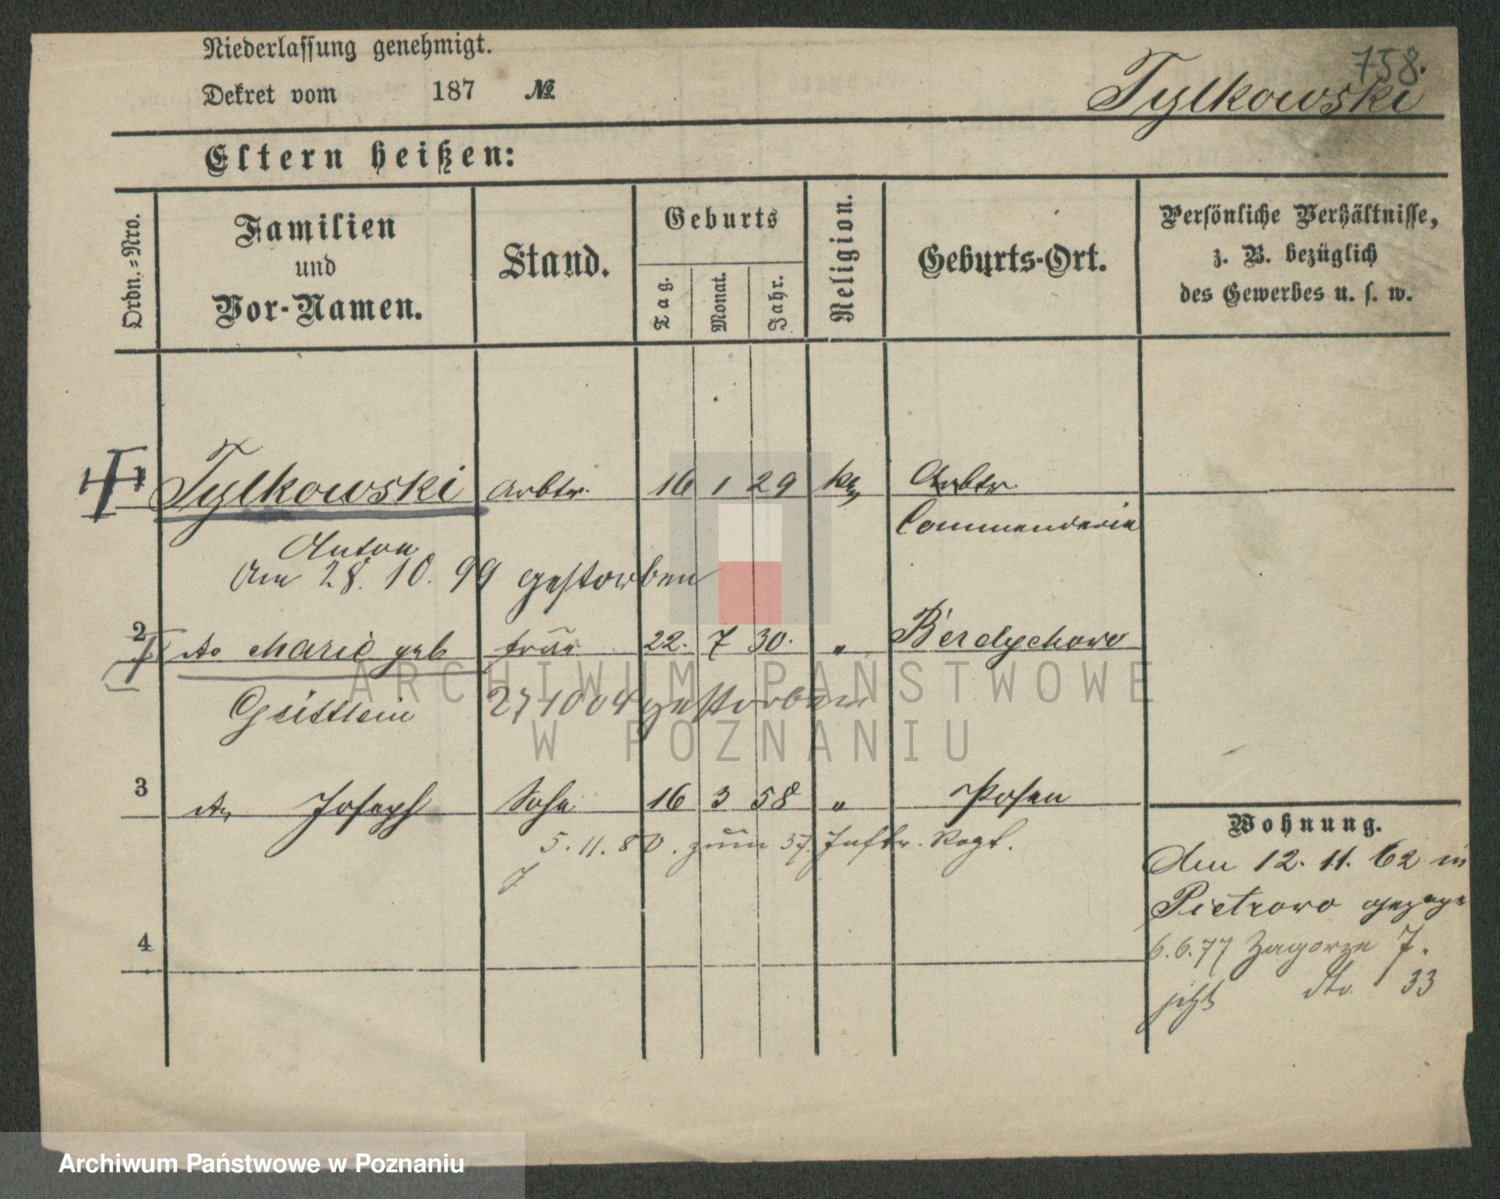 Niederlassung genehmigt.
758.
Dekret vom 187 №
Tylkowski
Eltern heißen:
Ordn.-Nro.
Familien und Vor-Namen.
Stand.
Geburts
Tag. Monat. Jahr.
Religion.
Geburts-Ort.
Persönliche Verhältnisse, z. B. bezüglich des Gewerbes u. s. w.
Tylkowski Arbtr. 16 1 29 kth Arbtr.
Commenderie
Anton
Am 28. 10. 99 gestorben
2 do Marie geb frau 22. 7 30. " Berdychowo
271004 gestorben
3 do Joseph Sohn 16 3 58 " Posen
5. 11. 80. zum 37. Inftr. Regt.
4
Wohnung.
Am 12. 11. 62 in
Pietrowo
6.6.77 Zagorze 7.
jetzt dto. 33
ARCHIWUM PAŃSTWOWE
W POZNANIU
Archiwum Państwowe w Poznaniu